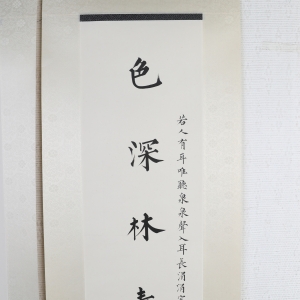 色深林
若人有耳唯聽泉泉聲入耳長涓涓